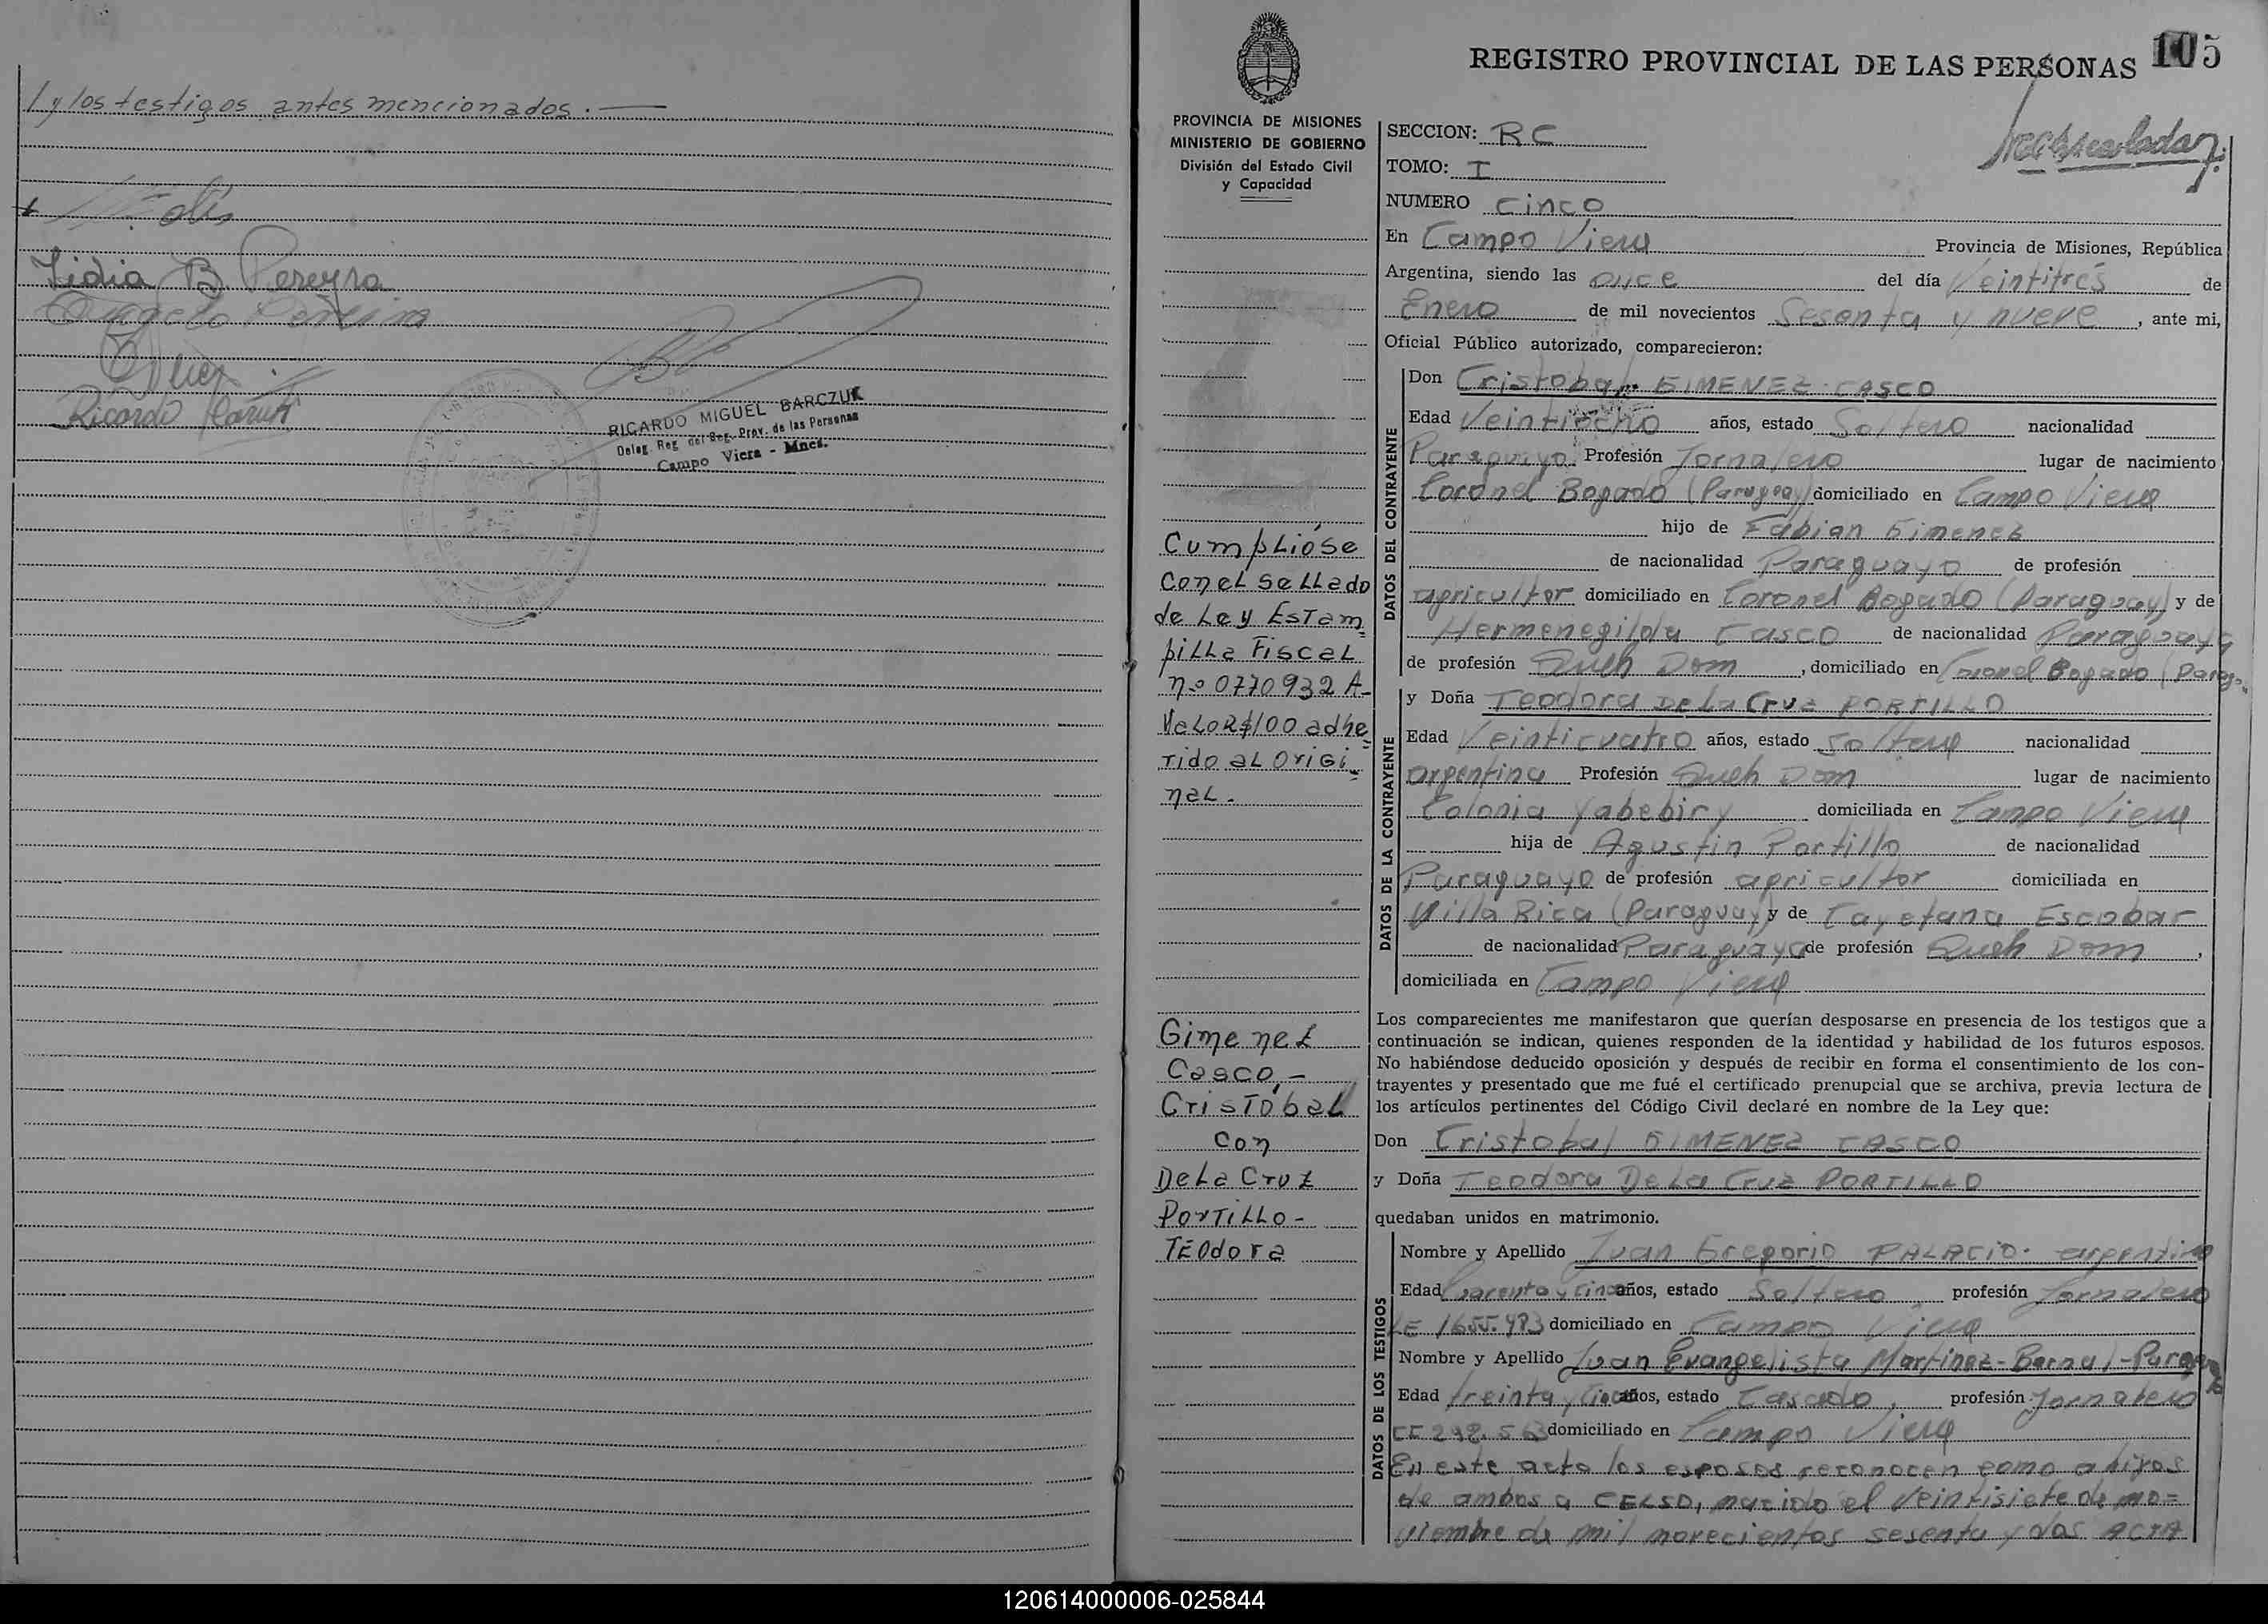 / y los testigos antes mencionados. —
Lidia B. Pereyra
Ricardo
RICARDO MIGUEL BARCZUK
Deleg. Reg. del Reg. Prov. de las Personas
Campo Viera - Mnes.
REGISTRO PROVINCIAL DE LAS PERSONAS 105
PROVINCIA DE MISIONES
MINISTERIO DE GOBIERNO
División del Estado Civil
y Capacidad
SECCION: RC
TOMO: I
NUMERO Cinco
En Campo Viera Provincia de Misiones, República
Argentina, siendo las once del día Veintitrés de
Enero de mil novecientos Sesenta y nueve, ante mi,
Oficial Público autorizado, comparecieron:
DATOS DEL CONTRAYENTE
Don Cristobal GIMENEZ CASCO
Edad Veintiocho años, estado Soltero nacionalidad
Paraguayo Profesión Jornalero lugar de nacimiento
Coronel Bogado (Paraguay) domiciliado en Campo Viera
hijo de Fabian Gimenez
de nacionalidad Paraguayo de profesión
agricultor domiciliado en Coronel Bogado (Paraguay) y de
Hermenegilda Casco de nacionalidad Paraguaya
de profesión Queh Dom, domiciliado en Coronel Bogado (Parag.
DATOS DE LA CONTRAYENTE
y Doña Teodora De La Cruz PORTILLO
Edad Veinticuatro años, estado Soltera nacionalidad
argentina Profesión Queh Dom lugar de nacimiento
Colonia Yabebiry domiciliada en Campo Viera
hija de Agustin Portillo de nacionalidad
Paraguayo de profesión agricultor domiciliada en
Villa Rica (Paraguay) y de Cayetana Escobar
de nacionalidad Paraguaya de profesión Queh Dom,
domiciliada en Campo Viera
Los comparecientes me manifestaron que querían desposarse en presencia de los testigos que a
continuación se indican, quienes responden de la identidad y habilidad de los futuros esposos.
No habiéndose deducido oposición y después de recibir en forma el consentimiento de los con-
trayentes y presentado que me fué el certificado prenupcial que se archiva, previa lectura de
los artículos pertinentes del Código Civil declaré en nombre de la Ley que:
Don Cristobal GIMENEZ CASCO
y Doña Teodora De La Cruz PORTILLO
quedaban unidos en matrimonio.
DATOS DE LOS TESTIGOS
Nombre y Apellido Juan Gregorio PALACIO. argentino
Edad Cuarenta y Cinco años, estado Soltero profesión Jornalero
LE 1655.483 domiciliado en Campo Viera
Nombre y Apellido Juan Evangelista Martinez-Bernal-Paraguayo
Edad treinta y Cinco años, estado Casado, profesión Jornalero
CE 298.563 domiciliado en Campo Viera
En este acto los esposos reconocen como a hijos
de ambos a CELSO, nacido el veintisiete de no=
viembre de mil novecientos sesenta y dos ACTA
Cumplióse
con el sellado
de Ley Estam
pilla Fiscal
nº 0770932 A-
Valor $100 adhe
rido al origi
nal.
Gimenez
Casco, -
Cristóbal
con
De La Cruz
Portillo -
Teodora
120614000006-025844